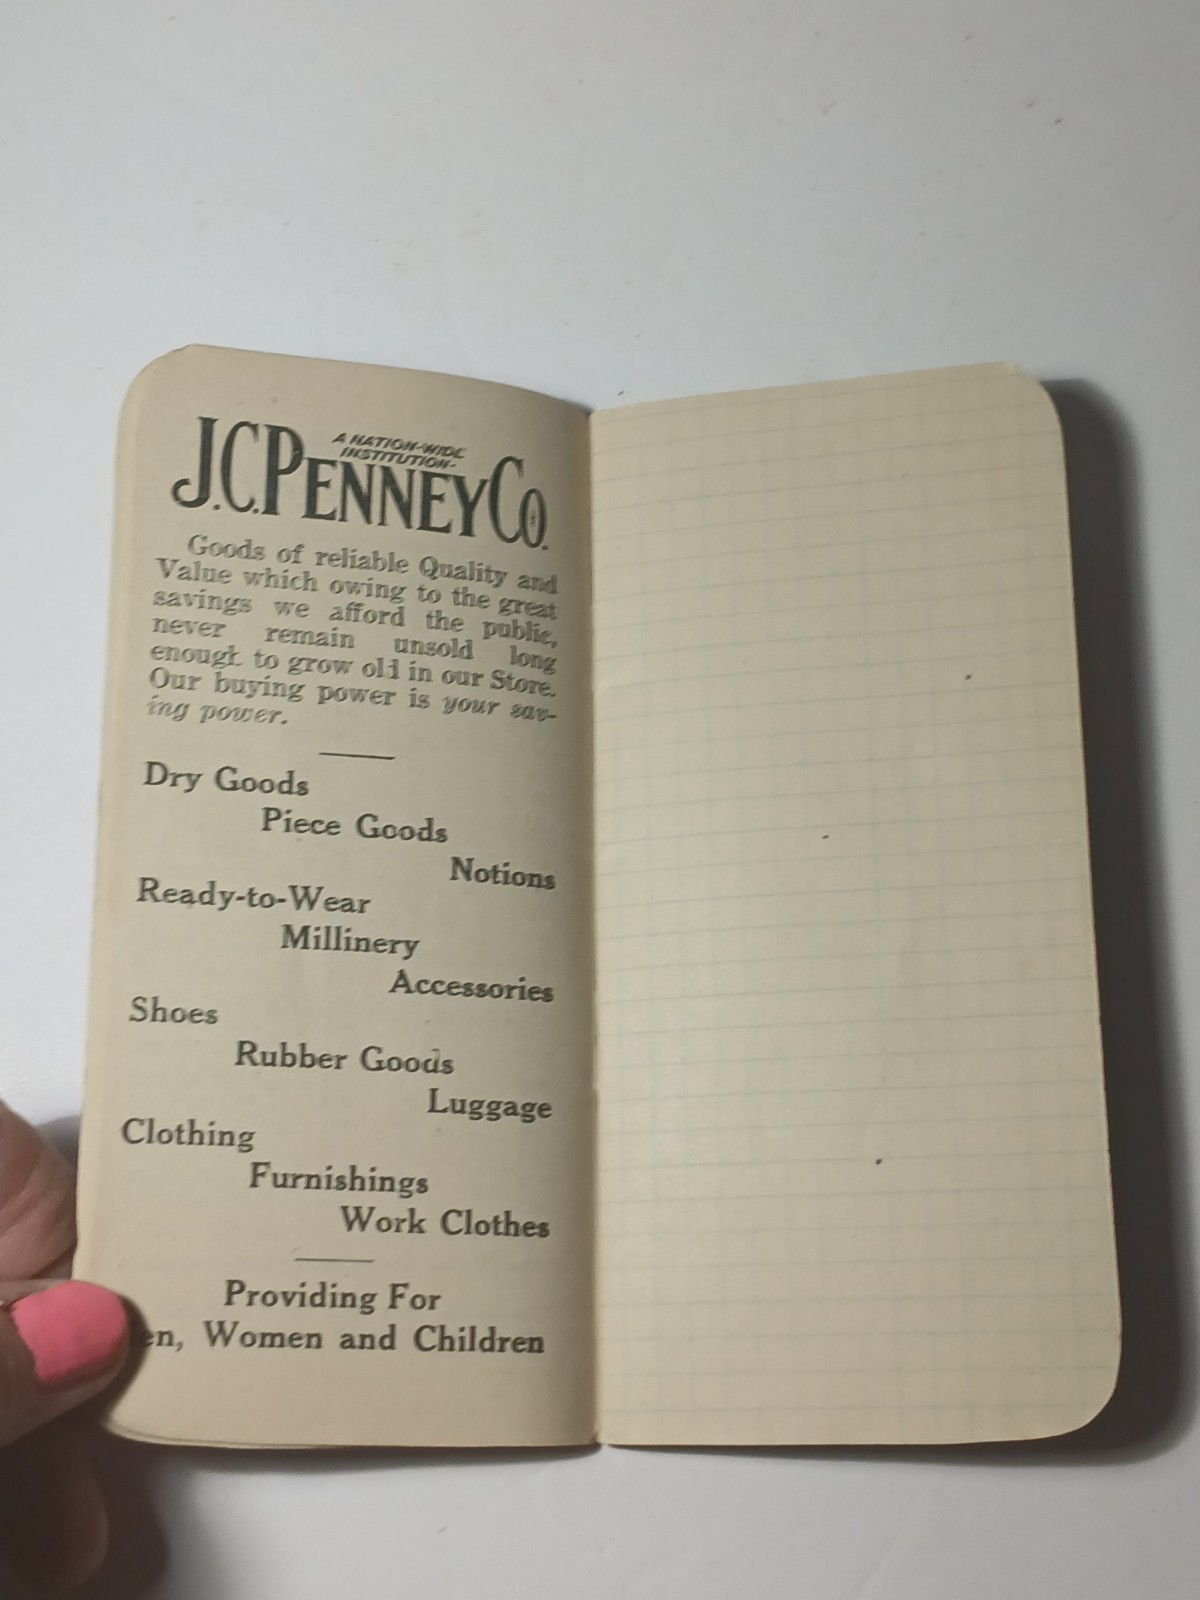 A NATION-WIDE
INSTITUTION-
J.C. PENNEY CO.
Goods of reliable Quality and
Value which owing to the great
savings we afford the public,
never remain unsold long
enough to grow old in our Store.
Our buying power is your sav-
ing power.
Dry Goods
Piece Goods
Notions
Ready-to-Wear
Millinery
Accessories
Shoes
Rubber Goods
Luggage
Clothing
Furnishings
Work Clothes
Providing For
en, Women and Children